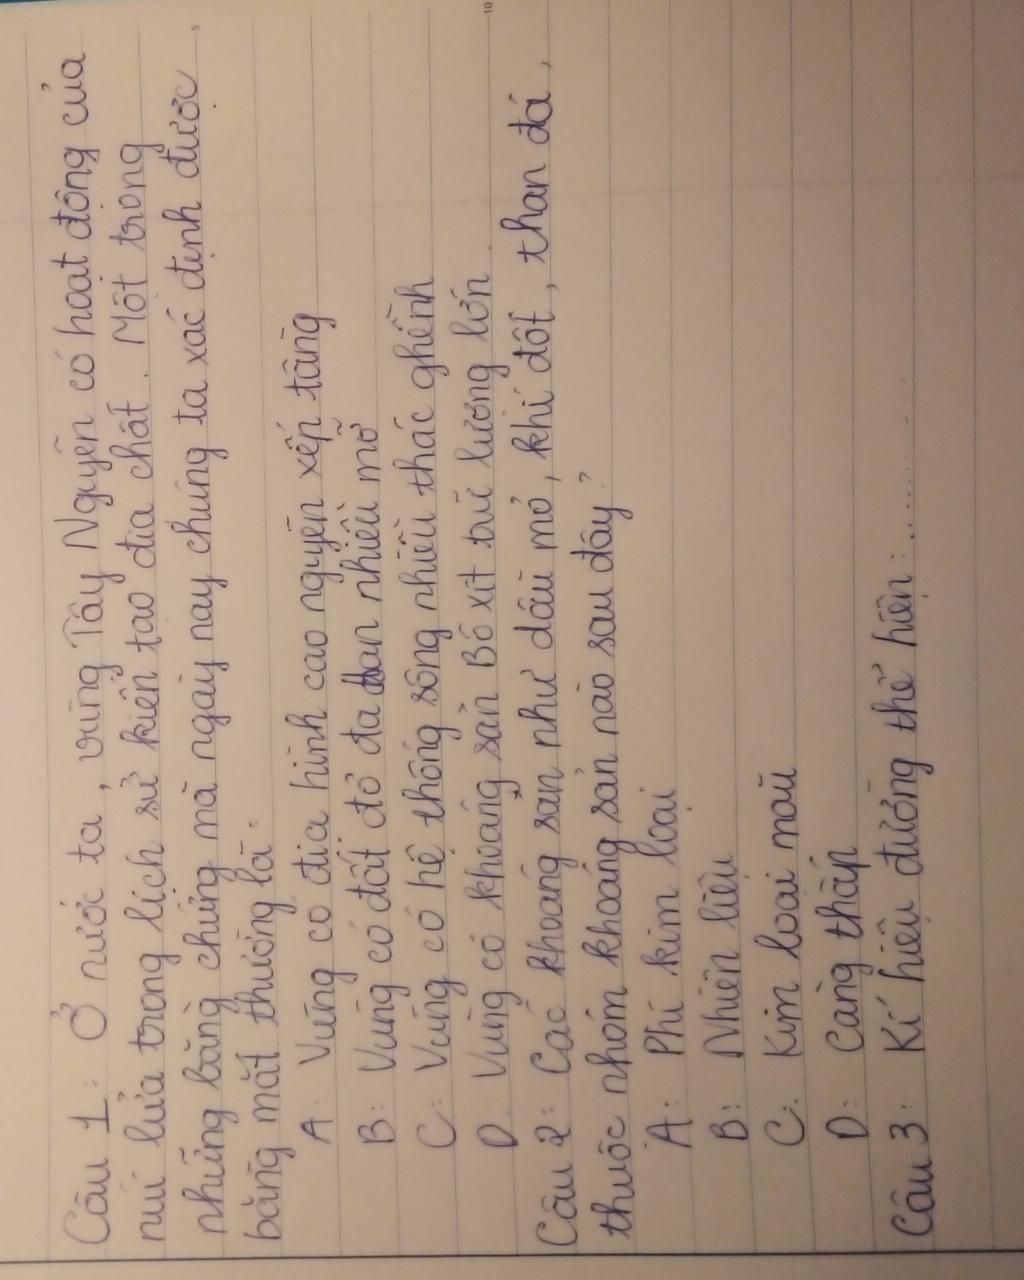 5
10
Câu 1: Ở nước ta, vùng Tây Nguyên có hoạt động của
núi lửa trong lịch sử kiến tạo địa chất. Một trong
những bằng chứng mà ngày nay chúng ta xác định được
bằng mắt thường là.
A: Vùng có địa hình cao nguyên xếp tầng
B: Vùng có đất đỏ ba dan nhiều mỡ
C: Vùng có hệ thống sông nhiều thác ghềnh
D. Vùng có khoáng sản Bô xít trữ lượng lớn
Câu 2: Các khoáng sản như dầu mỏ, khí đốt, than đá,
thuộc nhóm khoáng sản nào sau đây?
A: Phi kim loại
B: Nhiên liệu
C. Kim loại màu
D: Càng thấp
Câu 3: Kí hiệu đường thể hiện: ...........